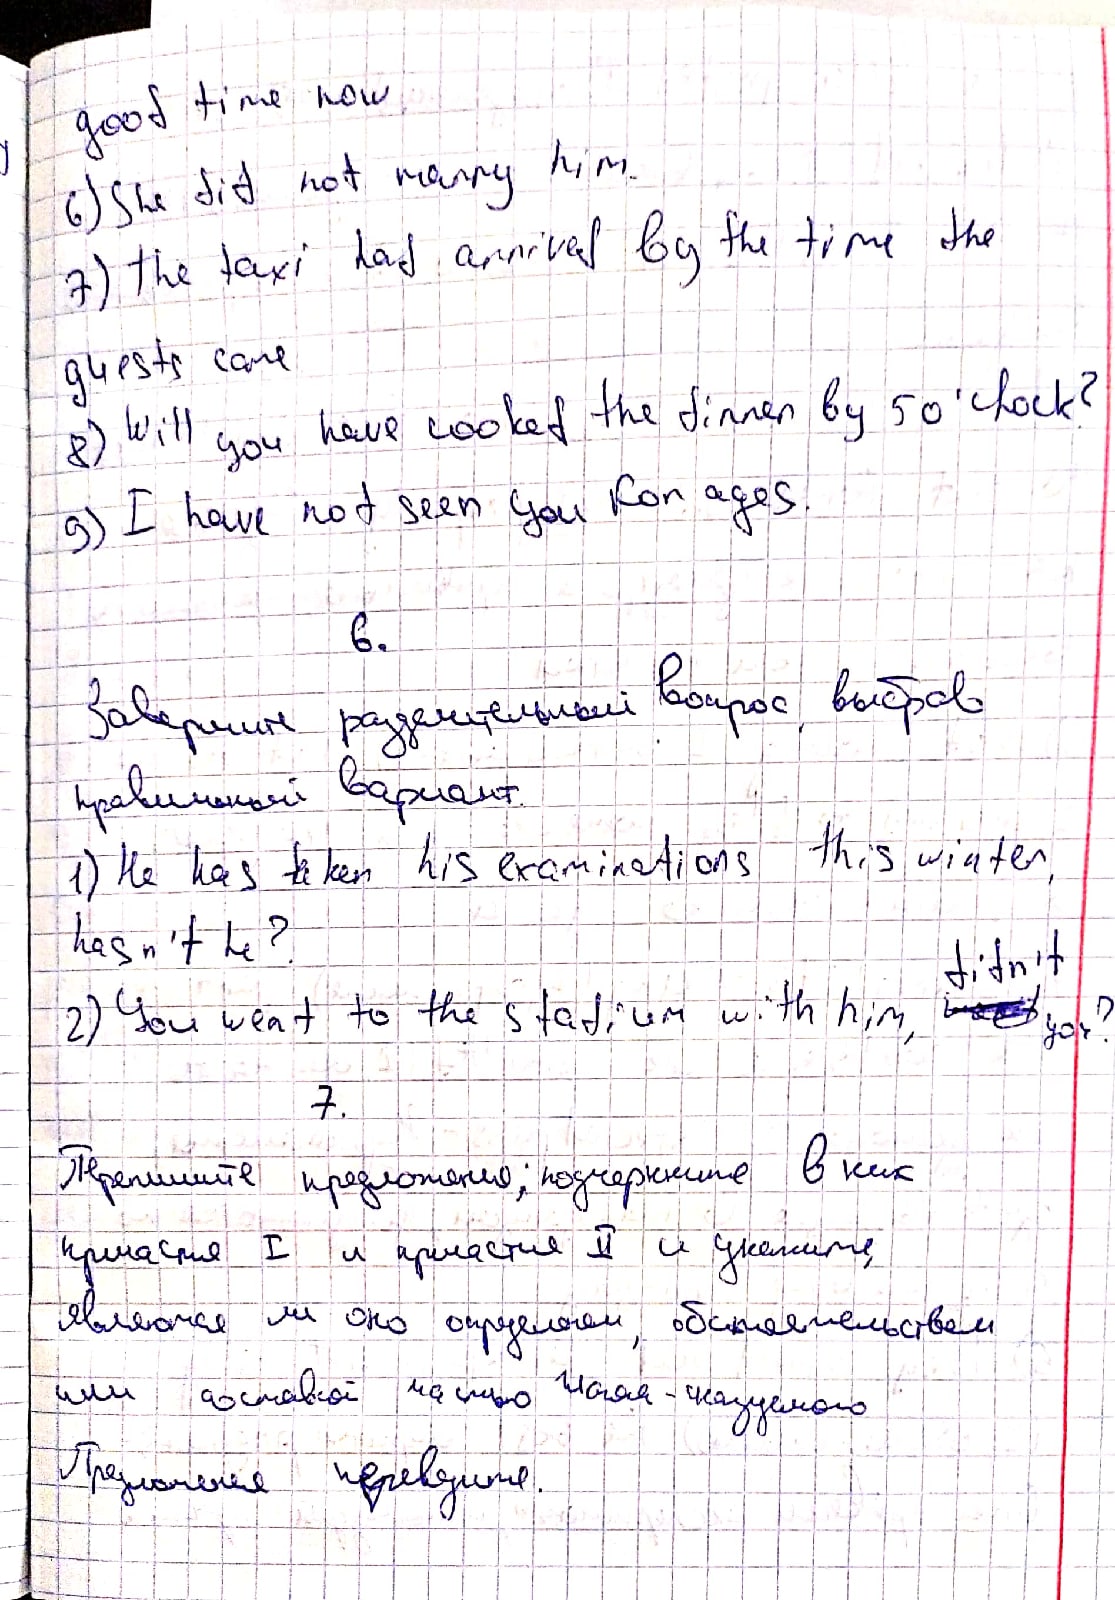 good time now.
6) She did not marry him.
7) the taxi had arrived by the time the
guests came
8) Will you have cooked the dinner by 5 o'clock?
9) I have not seen you for ages.
6.
Завершите разделительный вопрос, выбрав
правильный вариант.
1) He has taken his examinations this winter,
hasn't he?
2) You went to the stadium with him, didn't you?
7.
Перепишите предложения; подчеркните в них
причастия I и причастия II и укажите,
является ли оно определением, обстоятельством
или составной частью глагола-сказуемого
Предложения переведите.